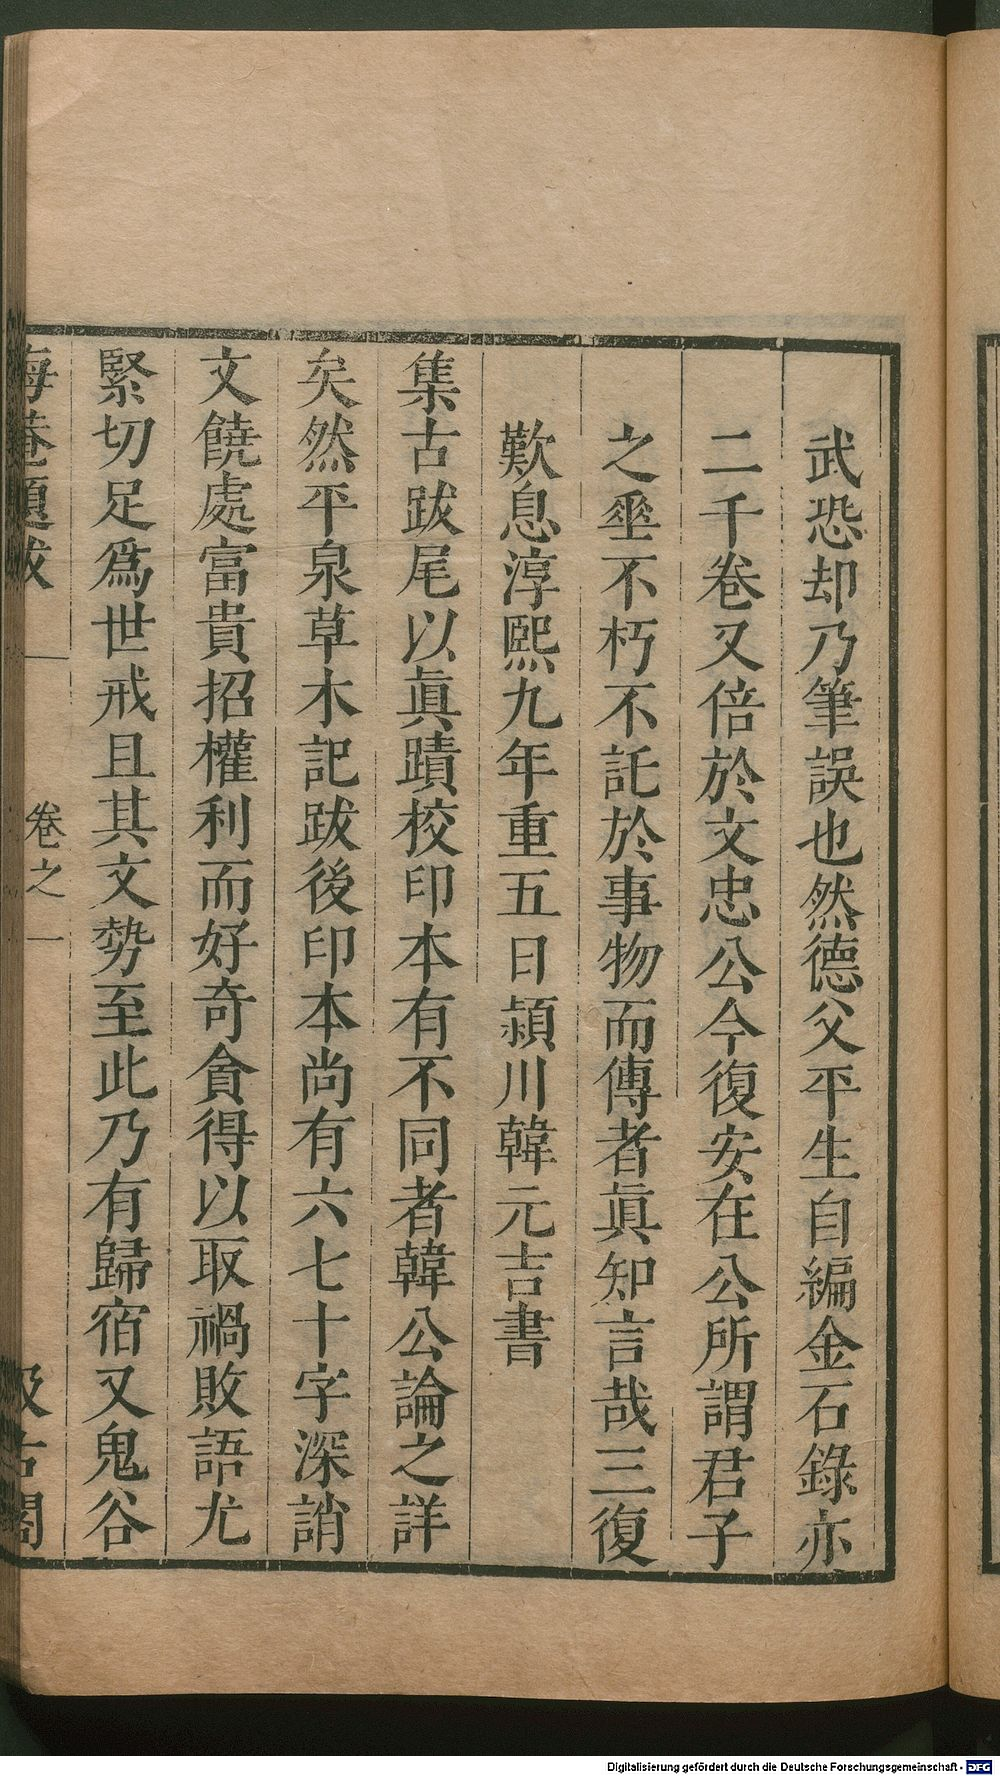 武恐却乃筆誤也然德父平生自編金石錄亦
二千卷又倍於文忠公今復安在公所謂君子
之垂不朽不託於事物而傳者眞知言哉三復
歎息淳熙九年重五日潁川韓元吉書
集古跋尾以眞蹟校印本有不同者韓公論之詳
矣然平泉草木記跋後印本尚有六七十字深誚
文饒處富貴招權利而好奇貪得以取禍敗語尤
緊切足爲世戒且其文勢至此乃有歸宿又鬼谷
海菴題跋 卷之一 汲古閣
Digitalisierung gefördert durch die Deutsche Forschungsgemeinschaft - DFG